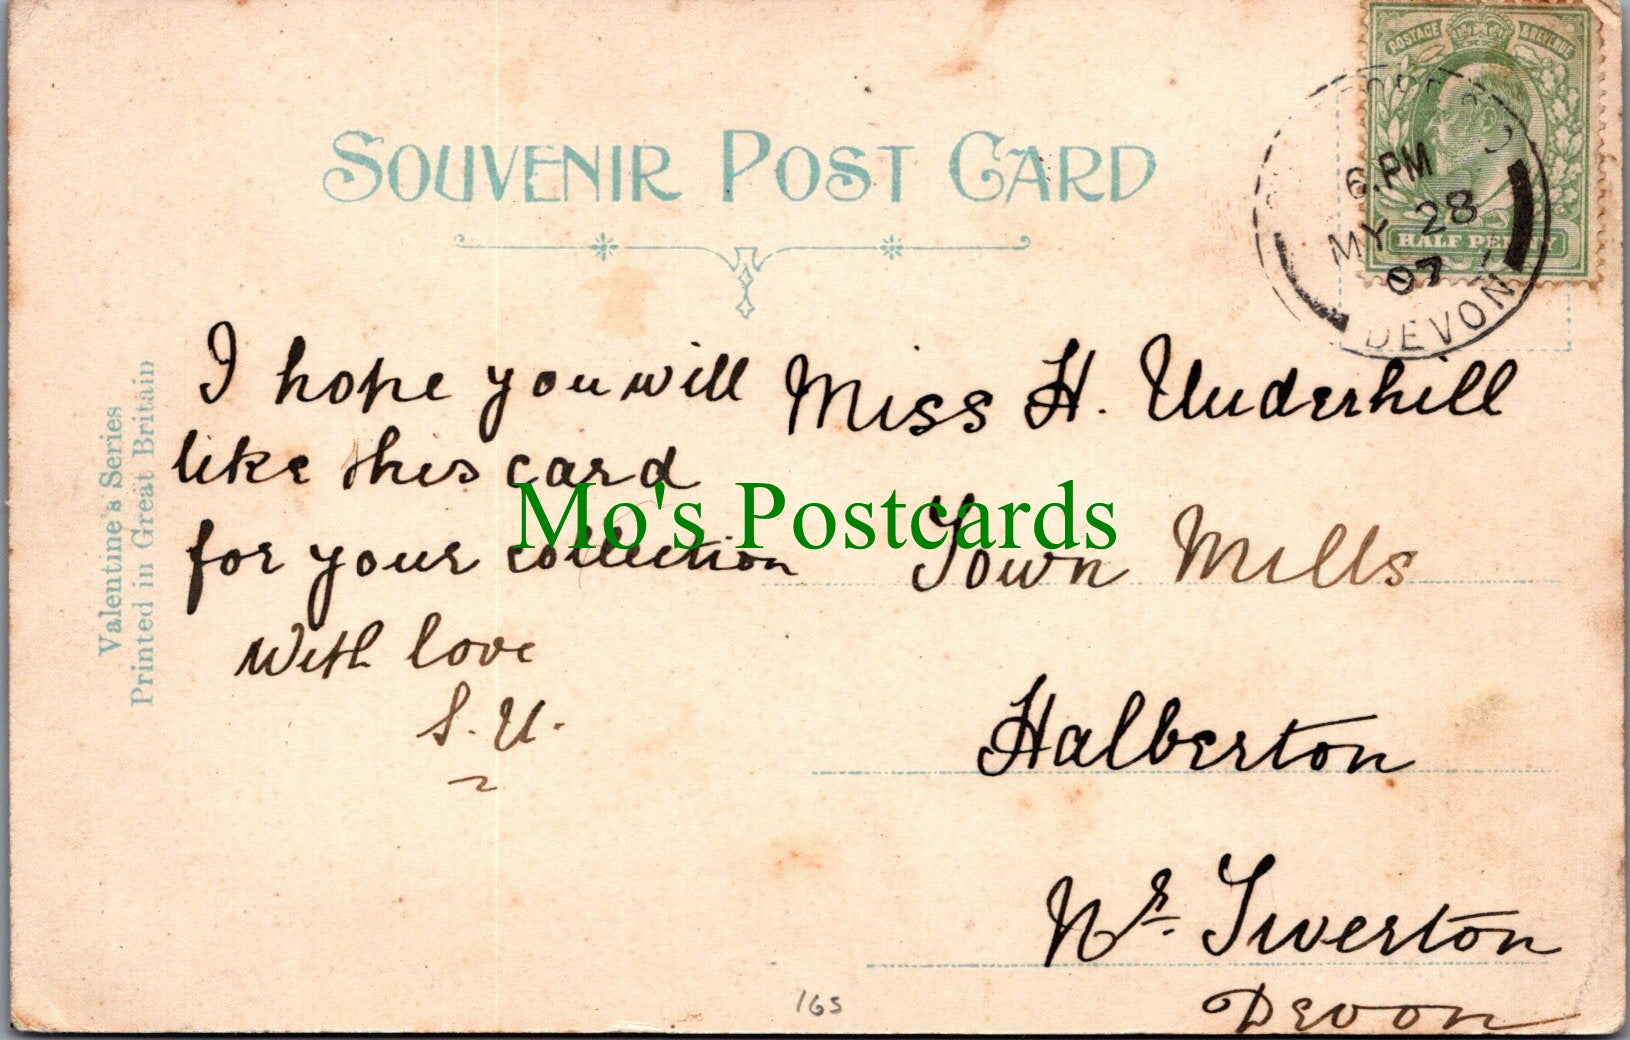 SOUVENIR POST CARD
POSTAGE & REVENUE
HALF PENNY
6.PM
MY 28
07
DEVON
Valentine's Series
Printed in Great Britain
I hope you will
like this card
for your collection
With love
S. U.
Miss H. Underhill
Town Mills
Halberton
Nr. Tiverton
Devon
Mo's Postcards
165